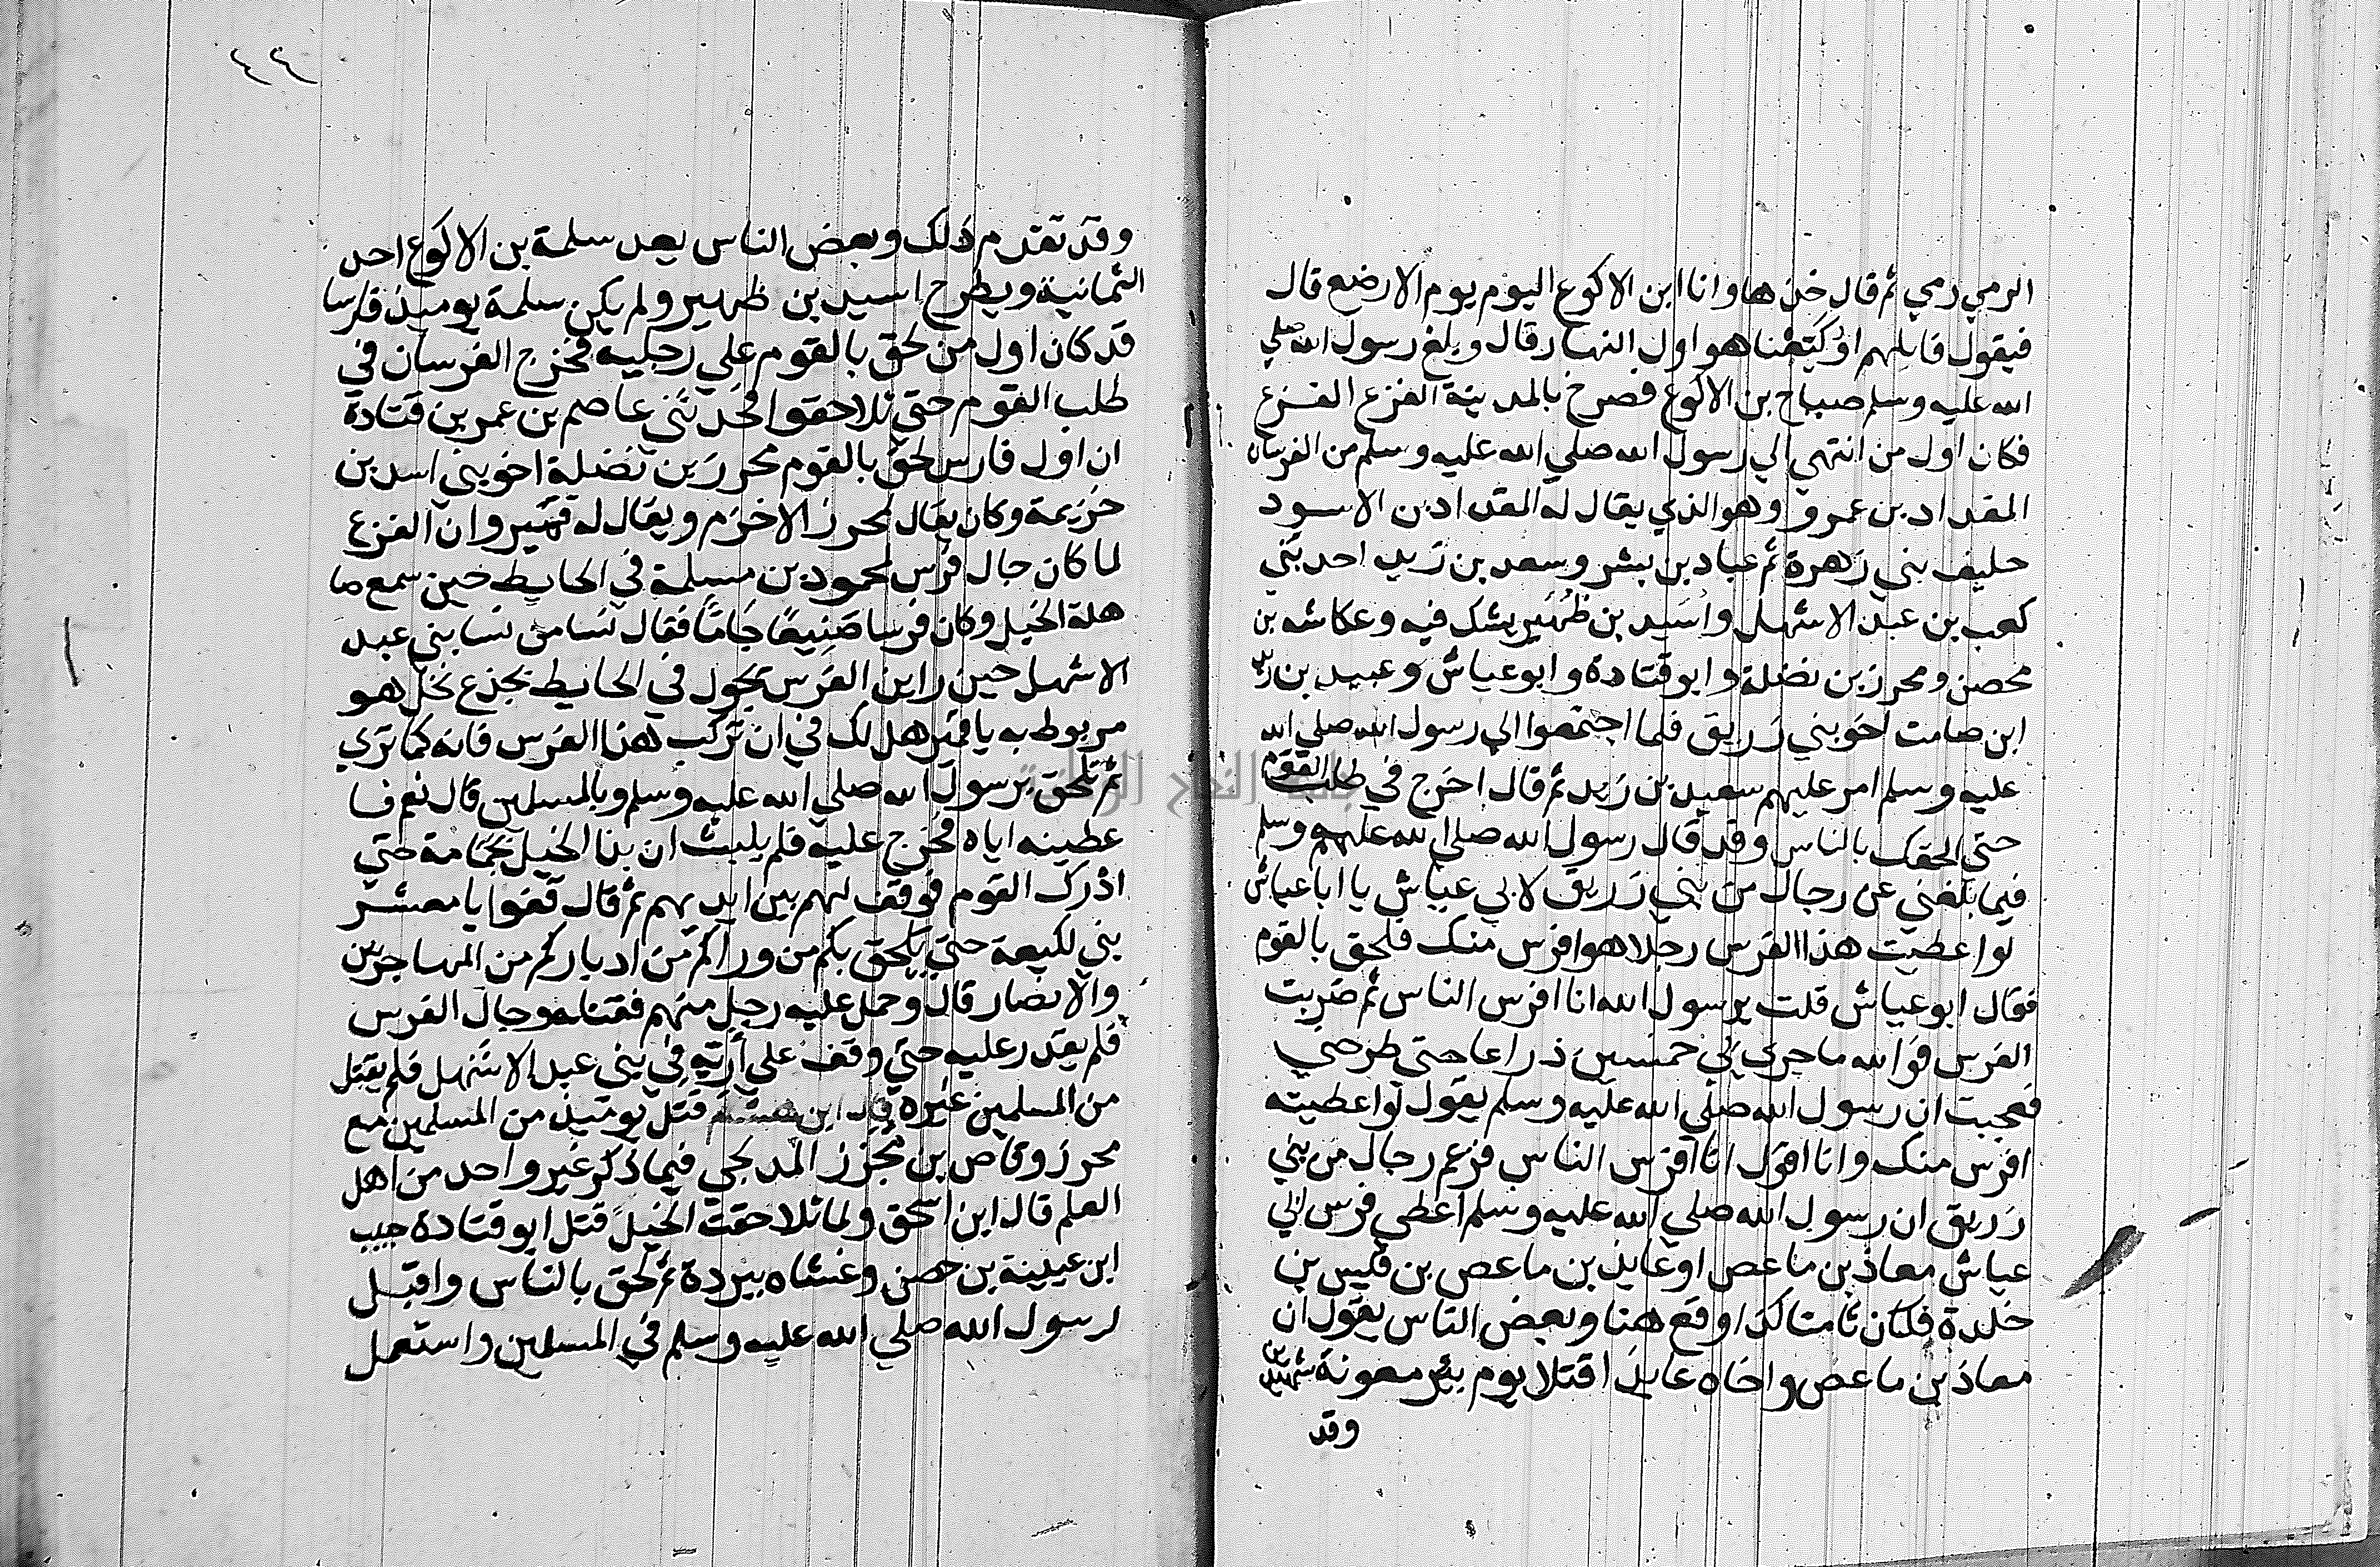 الرمي رمي ثم قال خذها وانا ابن الاكوع اليوم يوم الارضع قال
فيقول قايلهم اوكيعنا هو اول النهار قال وبلغ رسول الله صلي
الله عليه وسلم صياح بن الاكوع فصرخ بالمدينة الفزع الفزع
فكان اول من انتهي الي رسول الله صلي الله عليه وسلم من الفرسان
المقداد بن عمرو وهو الذي يقال له المقداد بن الاسود
حليف بني زهرة ثم عباد بن بشر وسعد بن زيد احد بني
كعب بن عبد الاشهل واسيد بن ظهير يشك فيه وعكاشه بن
محصن ومحرز بن نضلة وابو قتادة وابو عياش وعبيد بن زيد
ابن صامت اخو بني زريق فلما اجتمعوا الي رسول الله صلي الله
عليه وسلم امر عليهم سعيد بن زيد ثم قال اخرج في طلب القوم
حتي الحقك بالناس وقد قال رسول الله صلي الله عليه وسلم
فيما بلغني عن رجال من بني زريق لابي عياش يا ابا عياش
لو اعطيت هذا الفرس رجلا هو افرس منك فلحق بالقوم
فقال ابو عياش قلت يرسول الله انا افرس الناس ثم ضربت
الفرس فوالله ما جري بي خمسين ذراعا حتي طرحني
فعجبت ان رسول الله صلي الله عليه وسلم يقول لو اعطيته
افرس منك وانا اقول انا افرس الناس فزعم رجال من بني
زريق ان رسول الله صلي الله عليه وسلم اعطي فرس ابي
عياش معاذ بن ماعص او عايذ بن ماعص بن قيس بن
خلدة فكان ثامنا كذا وقع هنا وبعض الناس يقول ان
معاذ بن ماعص واخاه عايذ اقتلا يوم بئر معونة شهيدين
وقد
٤٤
وقد تقدم ذلك وبعض الناس يعد سلمة بن الاكوع احد
الثمانية ويطرح اسيد بن ظهير ولم يكن سلمة يوميذ فارسا
قد كان اول من لحق بالقوم علي رجليه فخرج الفرسان في
طلب القوم حتي تلاحقوا فحدثني عاصم بن عمر بن قتادة
ان اول فارس لحق بالقوم محرز بن نضلة اخو بني اسد بن
خزيمة وكان يقال لمحرز الاخزم ويقال له قمير وان الفزع
لما كان جال فرس لمحمود بن مسلمة في الحايط حين سمع صا
هلة الخيل وكان فرسا صنيعا جاما فقال نسا من نسا بني عبد
الاشهل حين راين الفرس يجول في الحايط بجذع نخل هو
مربوط به يا قمير هل لك في ان تركب هذا الفرس فانه كما تري
ثم تلحق برسول الله صلي الله عليه وسلم وبالمسلمين قال نعم فا
عطينه اياه فخرج عليه فلم يلبث ان بذا الخيل بجمامة حتي
ادرك القوم فوقف لهم بين ايديهم ثم قال قفوا يا معشر
بني لكيعة حتي يلحق بكم من ورائكم من ادباركم من المهاجرين
والانصار قال وحمل عليه رجل منهم فقتله وجال الفرس
فلم يقدر عليه حتي وقف علي اريه في بني عبد الاشهل فلم يقتل
من المسلمين غيره قال ابن هشام قتل يوميذ من المسلمين مع
محرز وقاص بن مجزز المدلجي فيما ذكر غير واحد من اهل
العلم قال ابن اسحق ولما تلاحقت الخيل قتل ابو قتادة حبيب
ابن عيينة بن حصن وغشاه ببردة ثم لحق بالناس واقبل
لرسول الله صلي الله عليه وسلم في المسلمين واستعمل